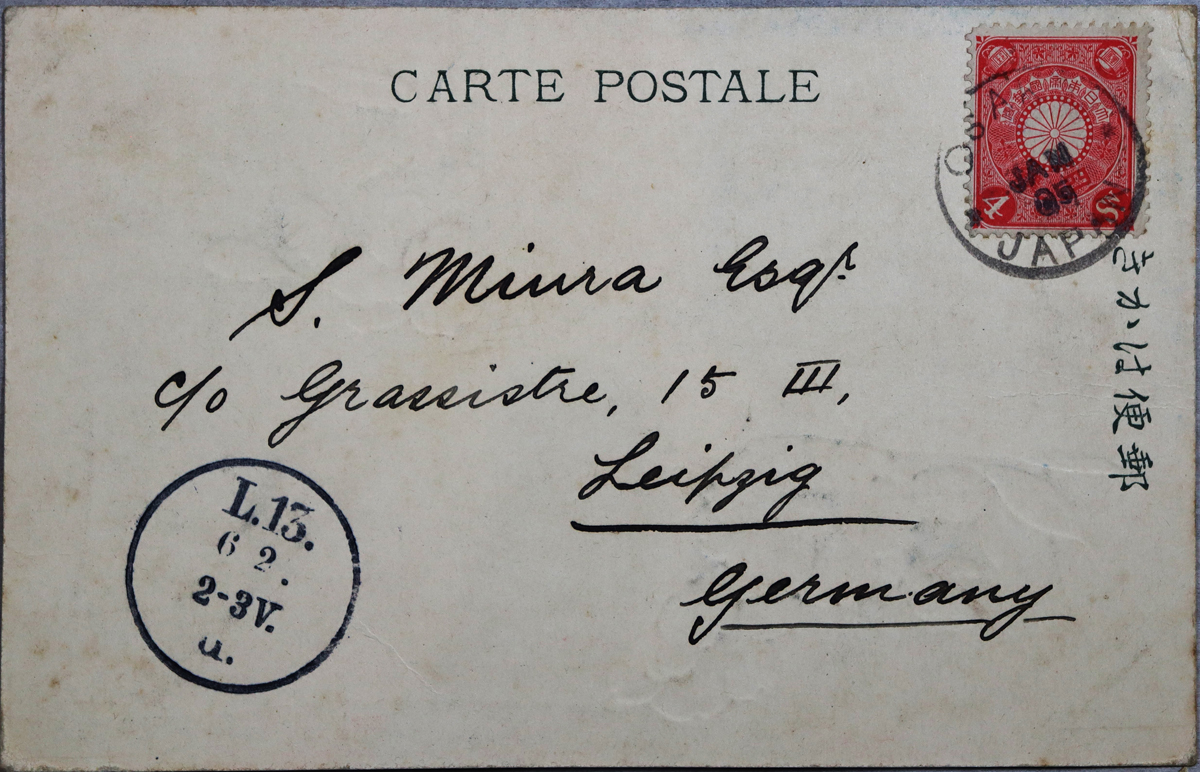 CARTE POSTALE
4 Sn
OSAKA
JAN
05
JAPAN
きかは便郵
S. Miura Esqr.
c/o Grassistre, 15 III,
Leipzig
Germany
L.13.
6 2.
2-3V.
u.